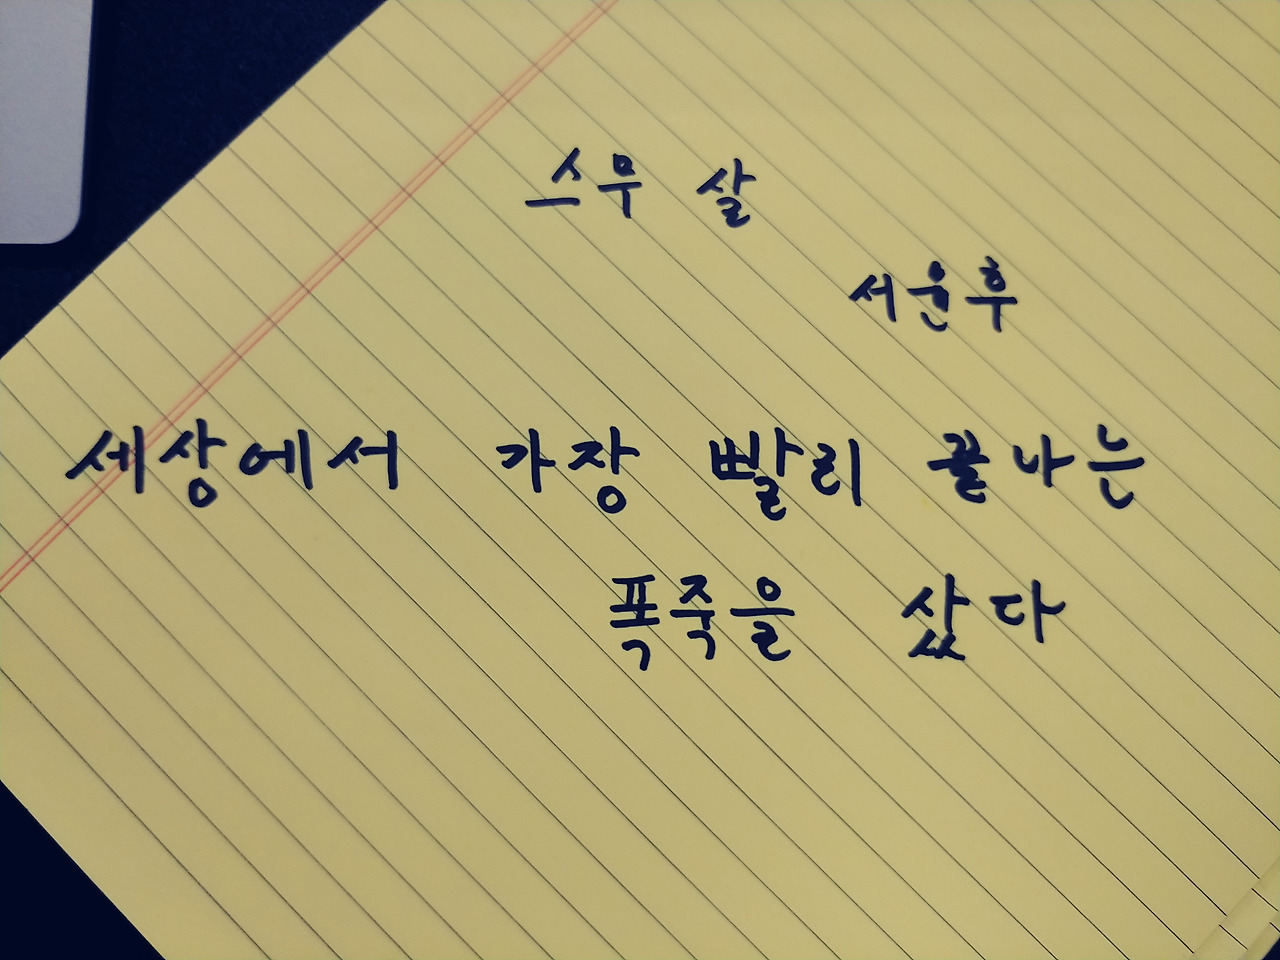 스무 살
서윤후
세상에서 가장 빨리 끝나는
폭죽을 샀다